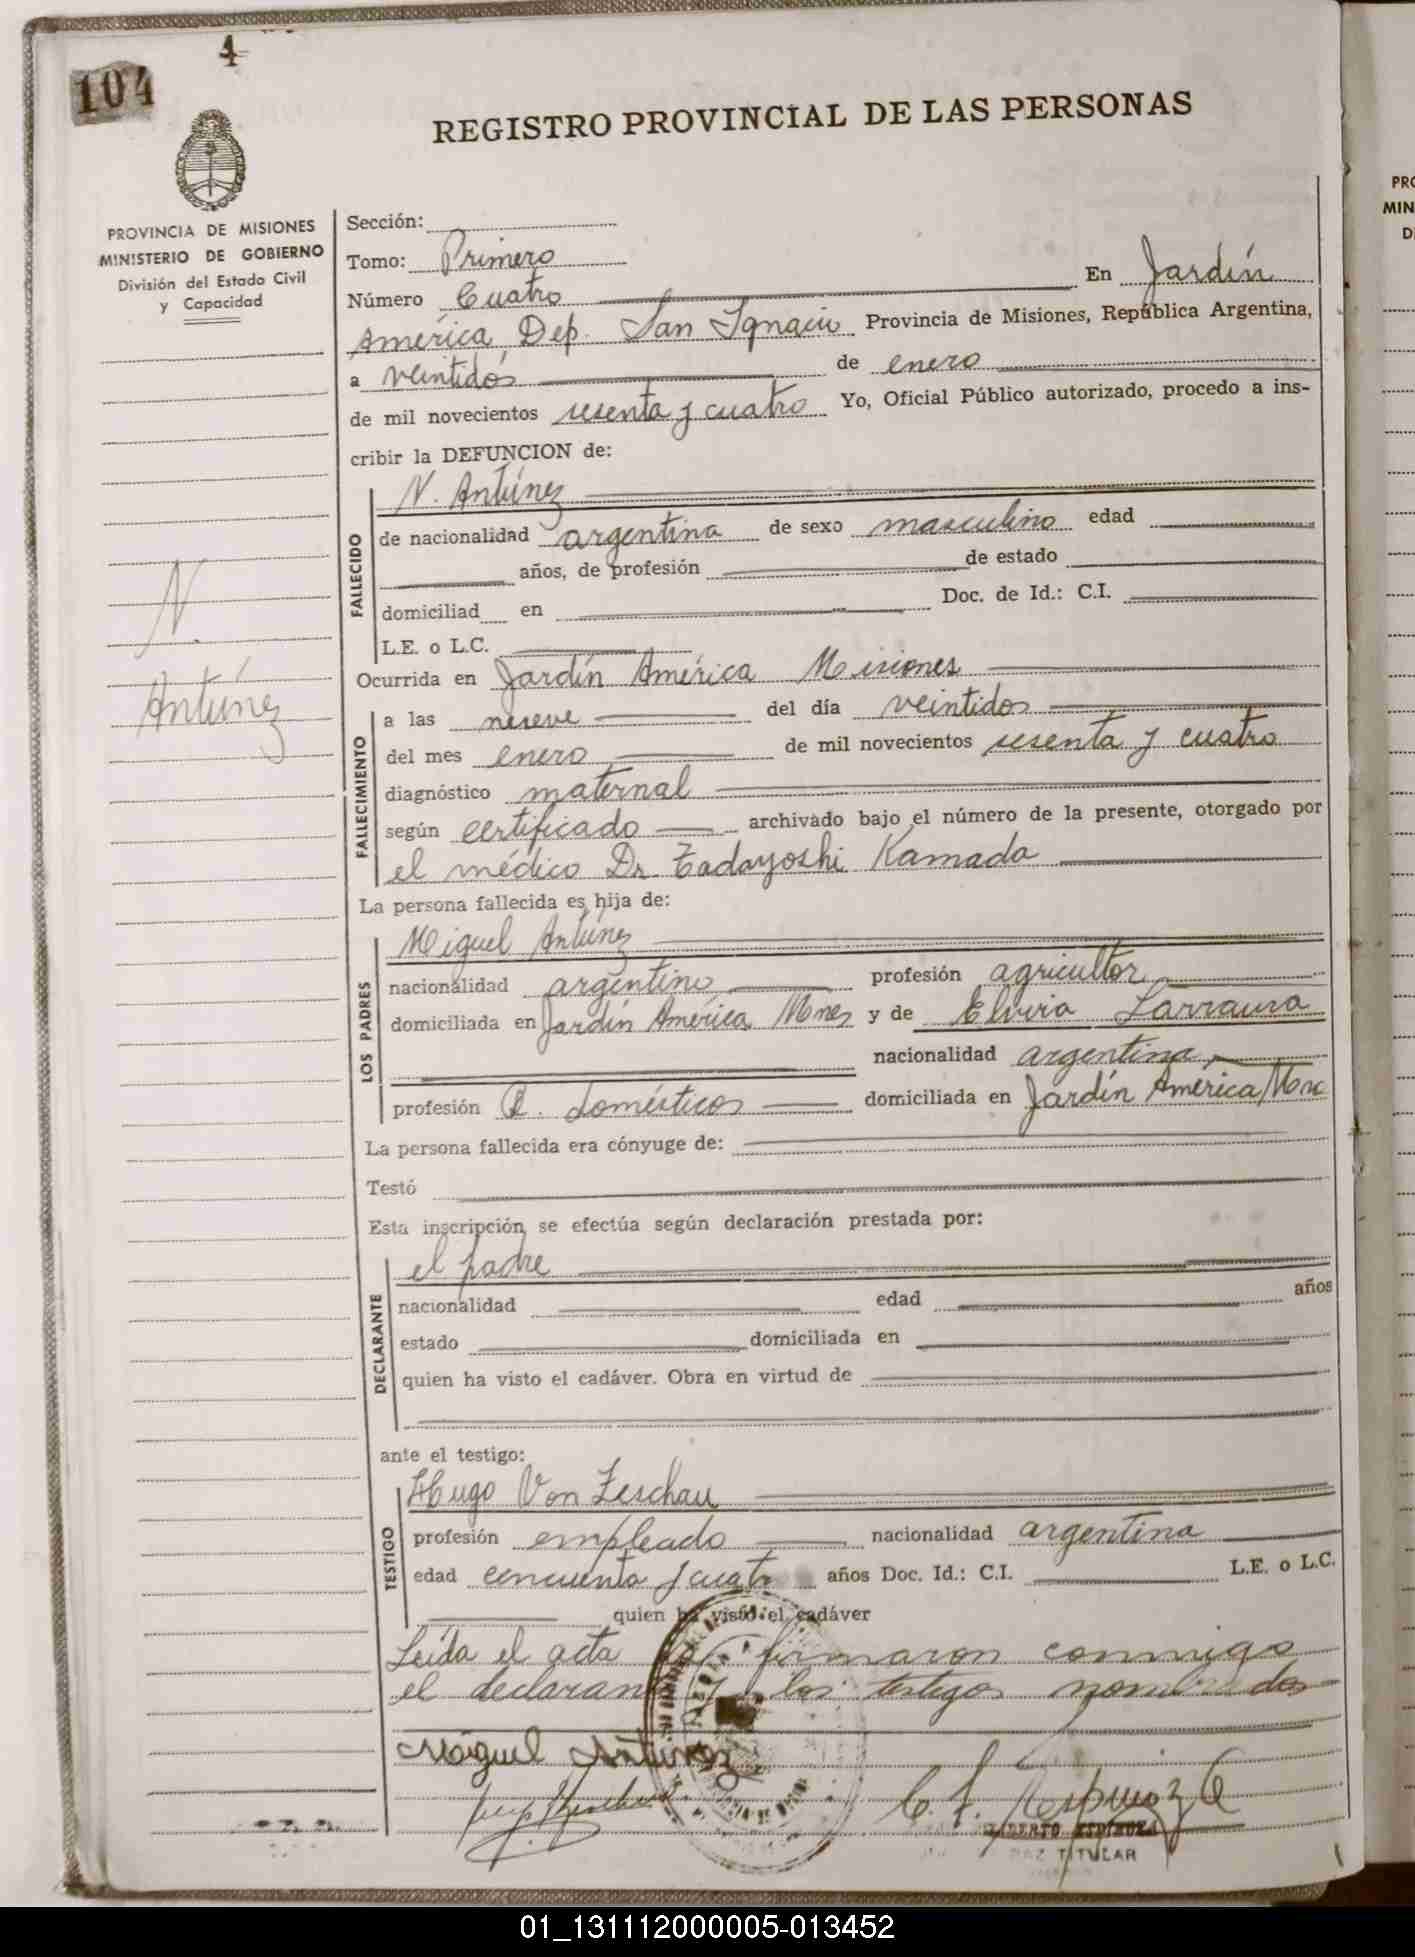 104
4
REGISTRO PROVINCIAL DE LAS PERSONAS
PROVINCIA DE MISIONES
MINISTERIO DE GOBIERNO
División del Estado Civil
y Capacidad
N.
Antúnez
Sección:
Tomo: Primero
Número Cuatro En Jardín
América, Dep. San Ignacio Provincia de Misiones, República Argentina,
a veintidós de enero
de mil novecientos sesenta y cuatro Yo, Oficial Público autorizado, procedo a ins-
cribir la DEFUNCION de:
FALLECIDO
N. Antúnez
de nacionalidad argentina de sexo masculino edad
años, de profesión de estado
domiciliad en Doc. de Id.: C.I.
L.E. o L.C.
Ocurrida en Jardín América Misiones
FALLECIMIENTO
a las nueve del día veintidos
del mes enero de mil novecientos sesenta y cuatro
diagnóstico maternal
según certificado archivado bajo el número de la presente, otorgado por
el médico Dr. Tadayoshi Kamada
La persona fallecida es hija de:
LOS PADRES
Miguel Antúnez
nacionalidad argentino profesión agricultor
domiciliada en Jardín América Mnes y de Elvira Larraura
nacionalidad argentina
profesión Q. domésticos domiciliada en Jardín América Mnes
La persona fallecida era cónyuge de:
Testó
Esta inscripción se efectúa según declaración prestada por:
DECLARANTE
el padre
nacionalidad edad años
estado domiciliada en
quien ha visto el cadáver. Obra en virtud de
ante el testigo:
TESTIGO
Hugo Von Zeschau
profesión empleado nacionalidad argentina
edad cincuenta y cuatro años Doc. Id.: C.I. L.E. o L.C.
quien ha visto el cadáver
Leída el acta la firmaron conmigo
el declarante y los testigos nombrados
Miguel Antunez
ALBERTO ESPINDOLA
PAZ TITULAR
PRO
MIN
D
01_131112000005-013452